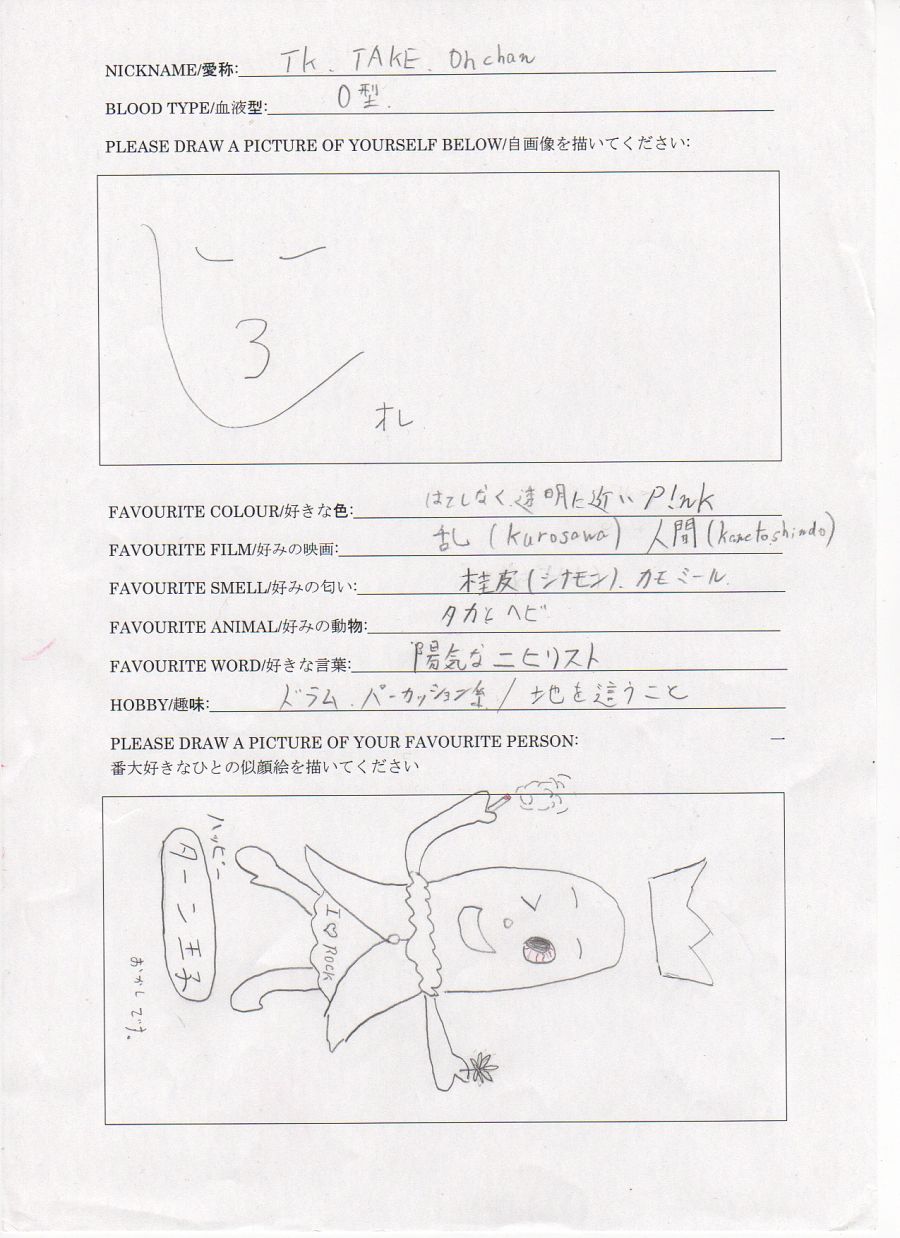 NICKNAME/愛称: Tk. TAKE. Oh chan
BLOOD TYPE/血液型: O型.
PLEASE DRAW A PICTURE OF YOURSELF BELOW/自画像を描いてください:
オレ
FAVOURITE COLOUR/好きな色: はてしなく透明に近い P!nk
FAVOURITE FILM/好みの映画: 乱 (kurosawa) 人間 (kanetoshindo)
FAVOURITE SMELL/好みの匂い: 桂皮 (シナモン). カモミール.
FAVOURITE ANIMAL/好みの動物: タカとヘビ
FAVOURITE WORD/好きな言葉: 陽気なニヒリスト
HOBBY/趣味: ドラム. パーカッション系. / 地を這うこと
PLEASE DRAW A PICTURE OF YOUR FAVOURITE PERSON: 一
番大好きなひとの似顔絵を描いてください
I ♡ ROCK
ハッピー
ターン王子
おかしです.